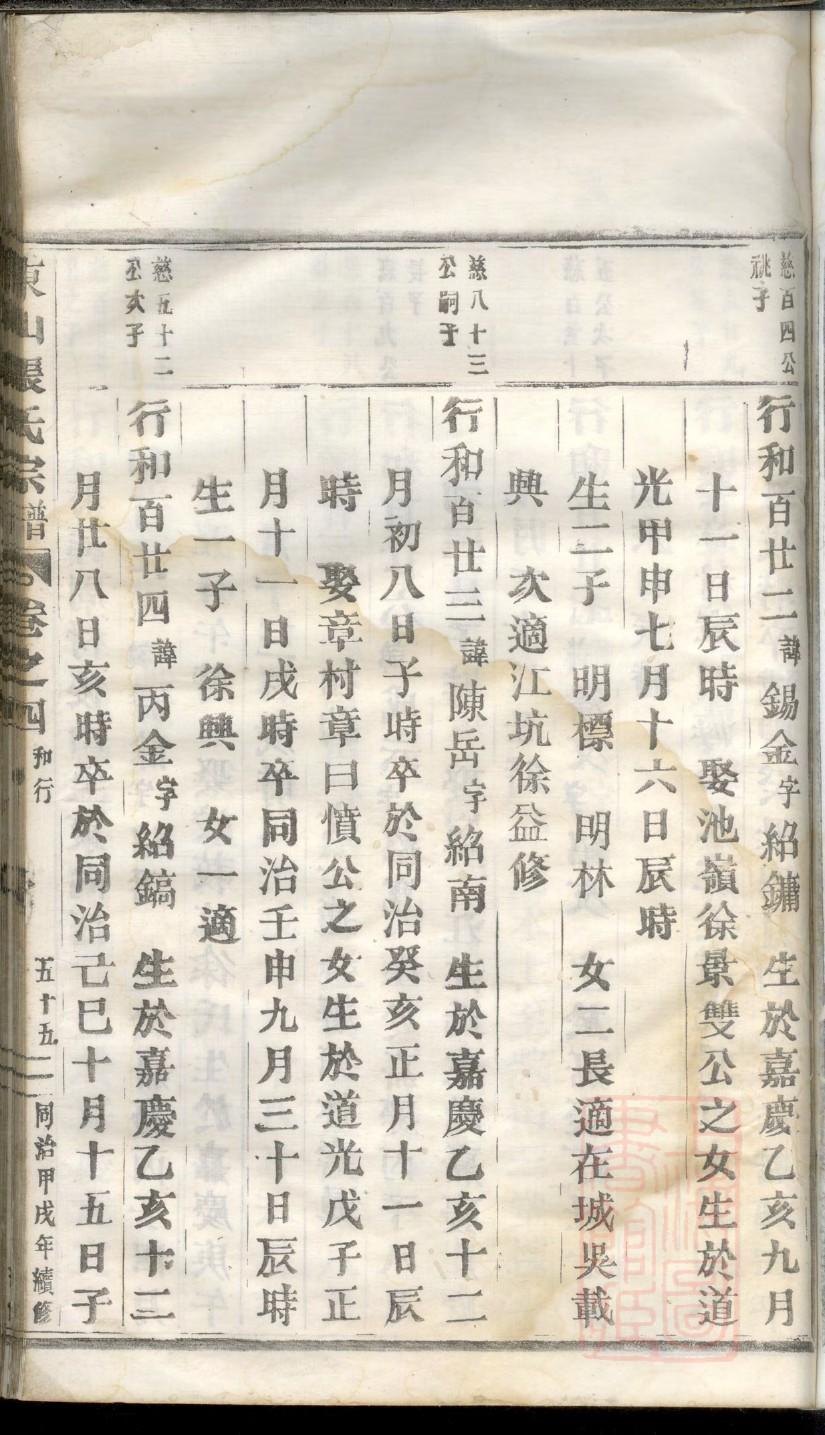 慈百四公
祧子
行和百廿二諱錫金字紹鏞　生於嘉慶乙亥九月
十一日辰時　娶池嶺徐景雙公之女生於道
光甲申七月十六日辰時
生二子　明標　明林　女二長適在城吳載
興　次適江坑徐益修
慈八十三
公嗣子
行和百廿三諱陳岳字紹南　生於嘉慶乙亥十二
月初八日子時卒於同治癸亥正月十一日辰
時　娶章村章曰憤公之女生於道光戊子正
月十一日戌時卒同治壬申九月三十日辰時
生一子　徐興　女一適
慈五十二
公次子
行和百廿四諱丙金字紹鎬　生於嘉慶乙亥十二
月廿八日亥時卒於同治己巳十月十五日子
東山張氏宗譜　卷之四　和行　五十五　同治甲戌年續修